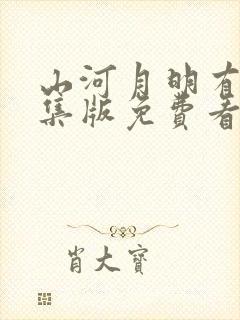 山河月明有
集版免费看
肖大寶